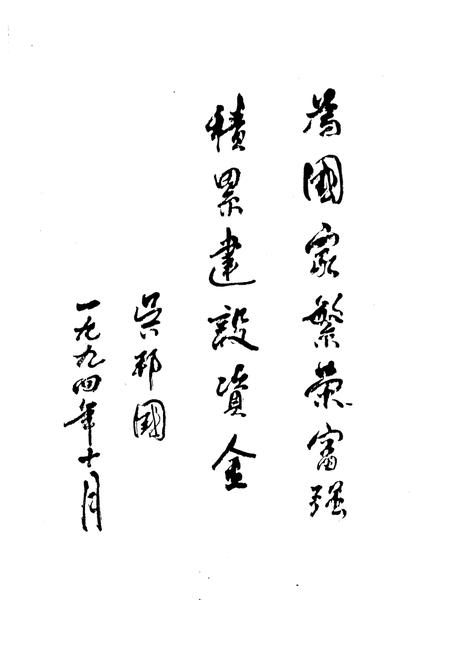 為國家繁荣富强
積累建設資金
吴邦國
一九九四年十月